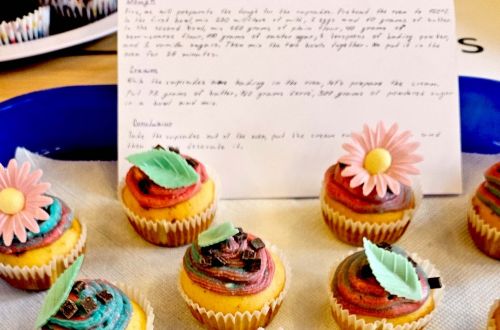 Dough:
First, we will prepare the dough for the cupcakes. Preheat the oven to
the first bowl, mix 200 millilitre of milk, 2 eggs and 40 grams of butter
In the second bowl, mix grams of plain flour, 40 grams of
grams of powder sugar, 2 teaspoons of baking powder,
and 2 vanilla sugars. Then mix the two bowls together. put it in the
oven for 25 minutes.
Cream
the cupcakes are baking in the oven, let's prepare the cream.
Put 75 grams of butter, grams 300 grams of powdered sugar
in a bowl and mix.
Conclusion
Take the cupcakes out of the oven, put the cream and
then decorate it.